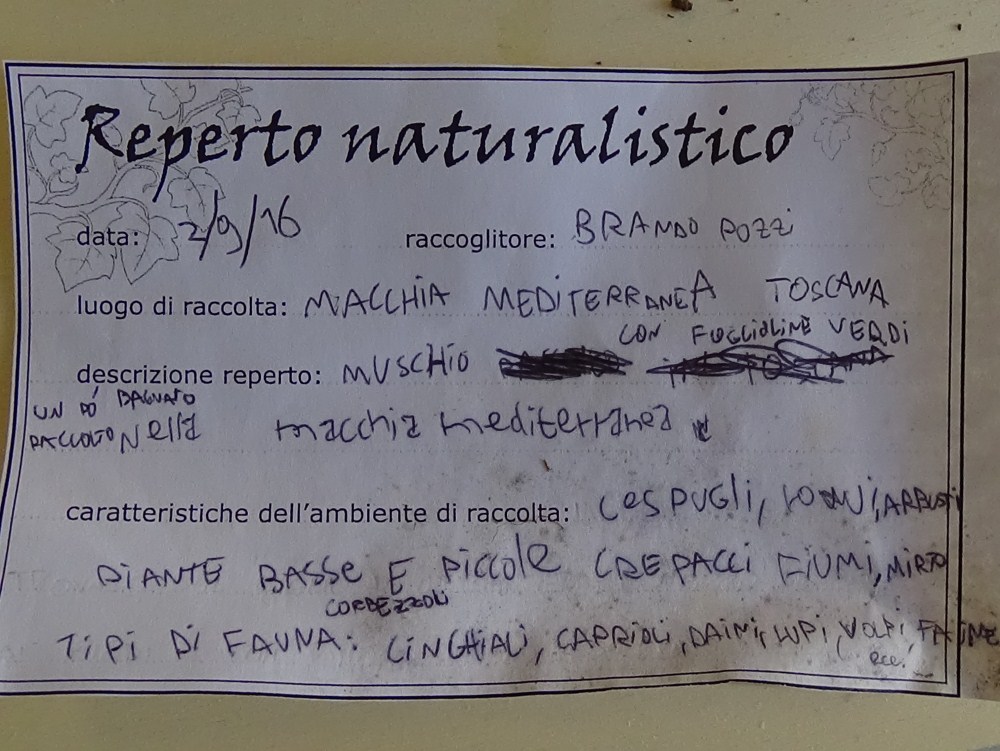 Reperto naturalistico
data: 2/9/16 raccoglitore: BRANDO POZZi
luogo di raccolta: MACCHIA MEDITERRANEA TOSCANA
CON FOGLIOLINE VERDI
descrizione reperto: MUSCHIO
UN PÓ BAGNATO
RACCOLTO Nella macchia mediterranea
caratteristiche dell'ambiente di raccolta: CesPUGli, ARBUSTi
PiANTE BASSe E PiccOle CREPACCi FiUMi, MIRTO
CORBEZZOLI
TiPi Di FAUNA: CiNGHiALi, CAPRiOLi, DAiNi, LUPi, VOLPi,
ecc.